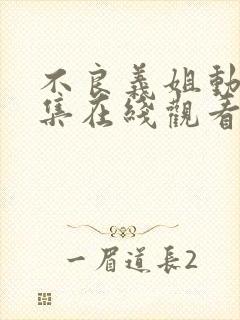 不良義姐動
集在綫觀看
一眉道長2